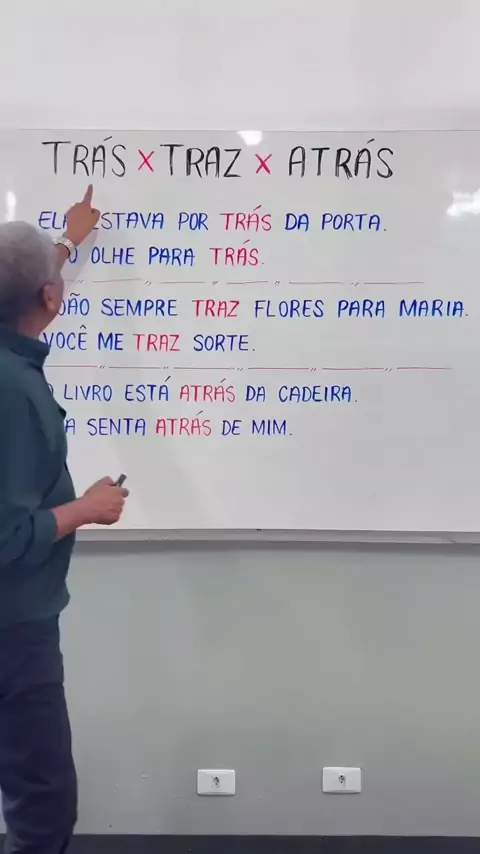 TRÁS X TRAZ X ATRÁS
ESTAVA POR TRÁS DA PORTA.
OLHE PARA TRÁS.
SEMPRE TRAZ FLORES PARA MARIA.
VOCÊ ME TRAZ SORTE.
LIVRO ESTÁ ATRÁS DA CADEIRA.
SENTA ATRÁS DE MIM.